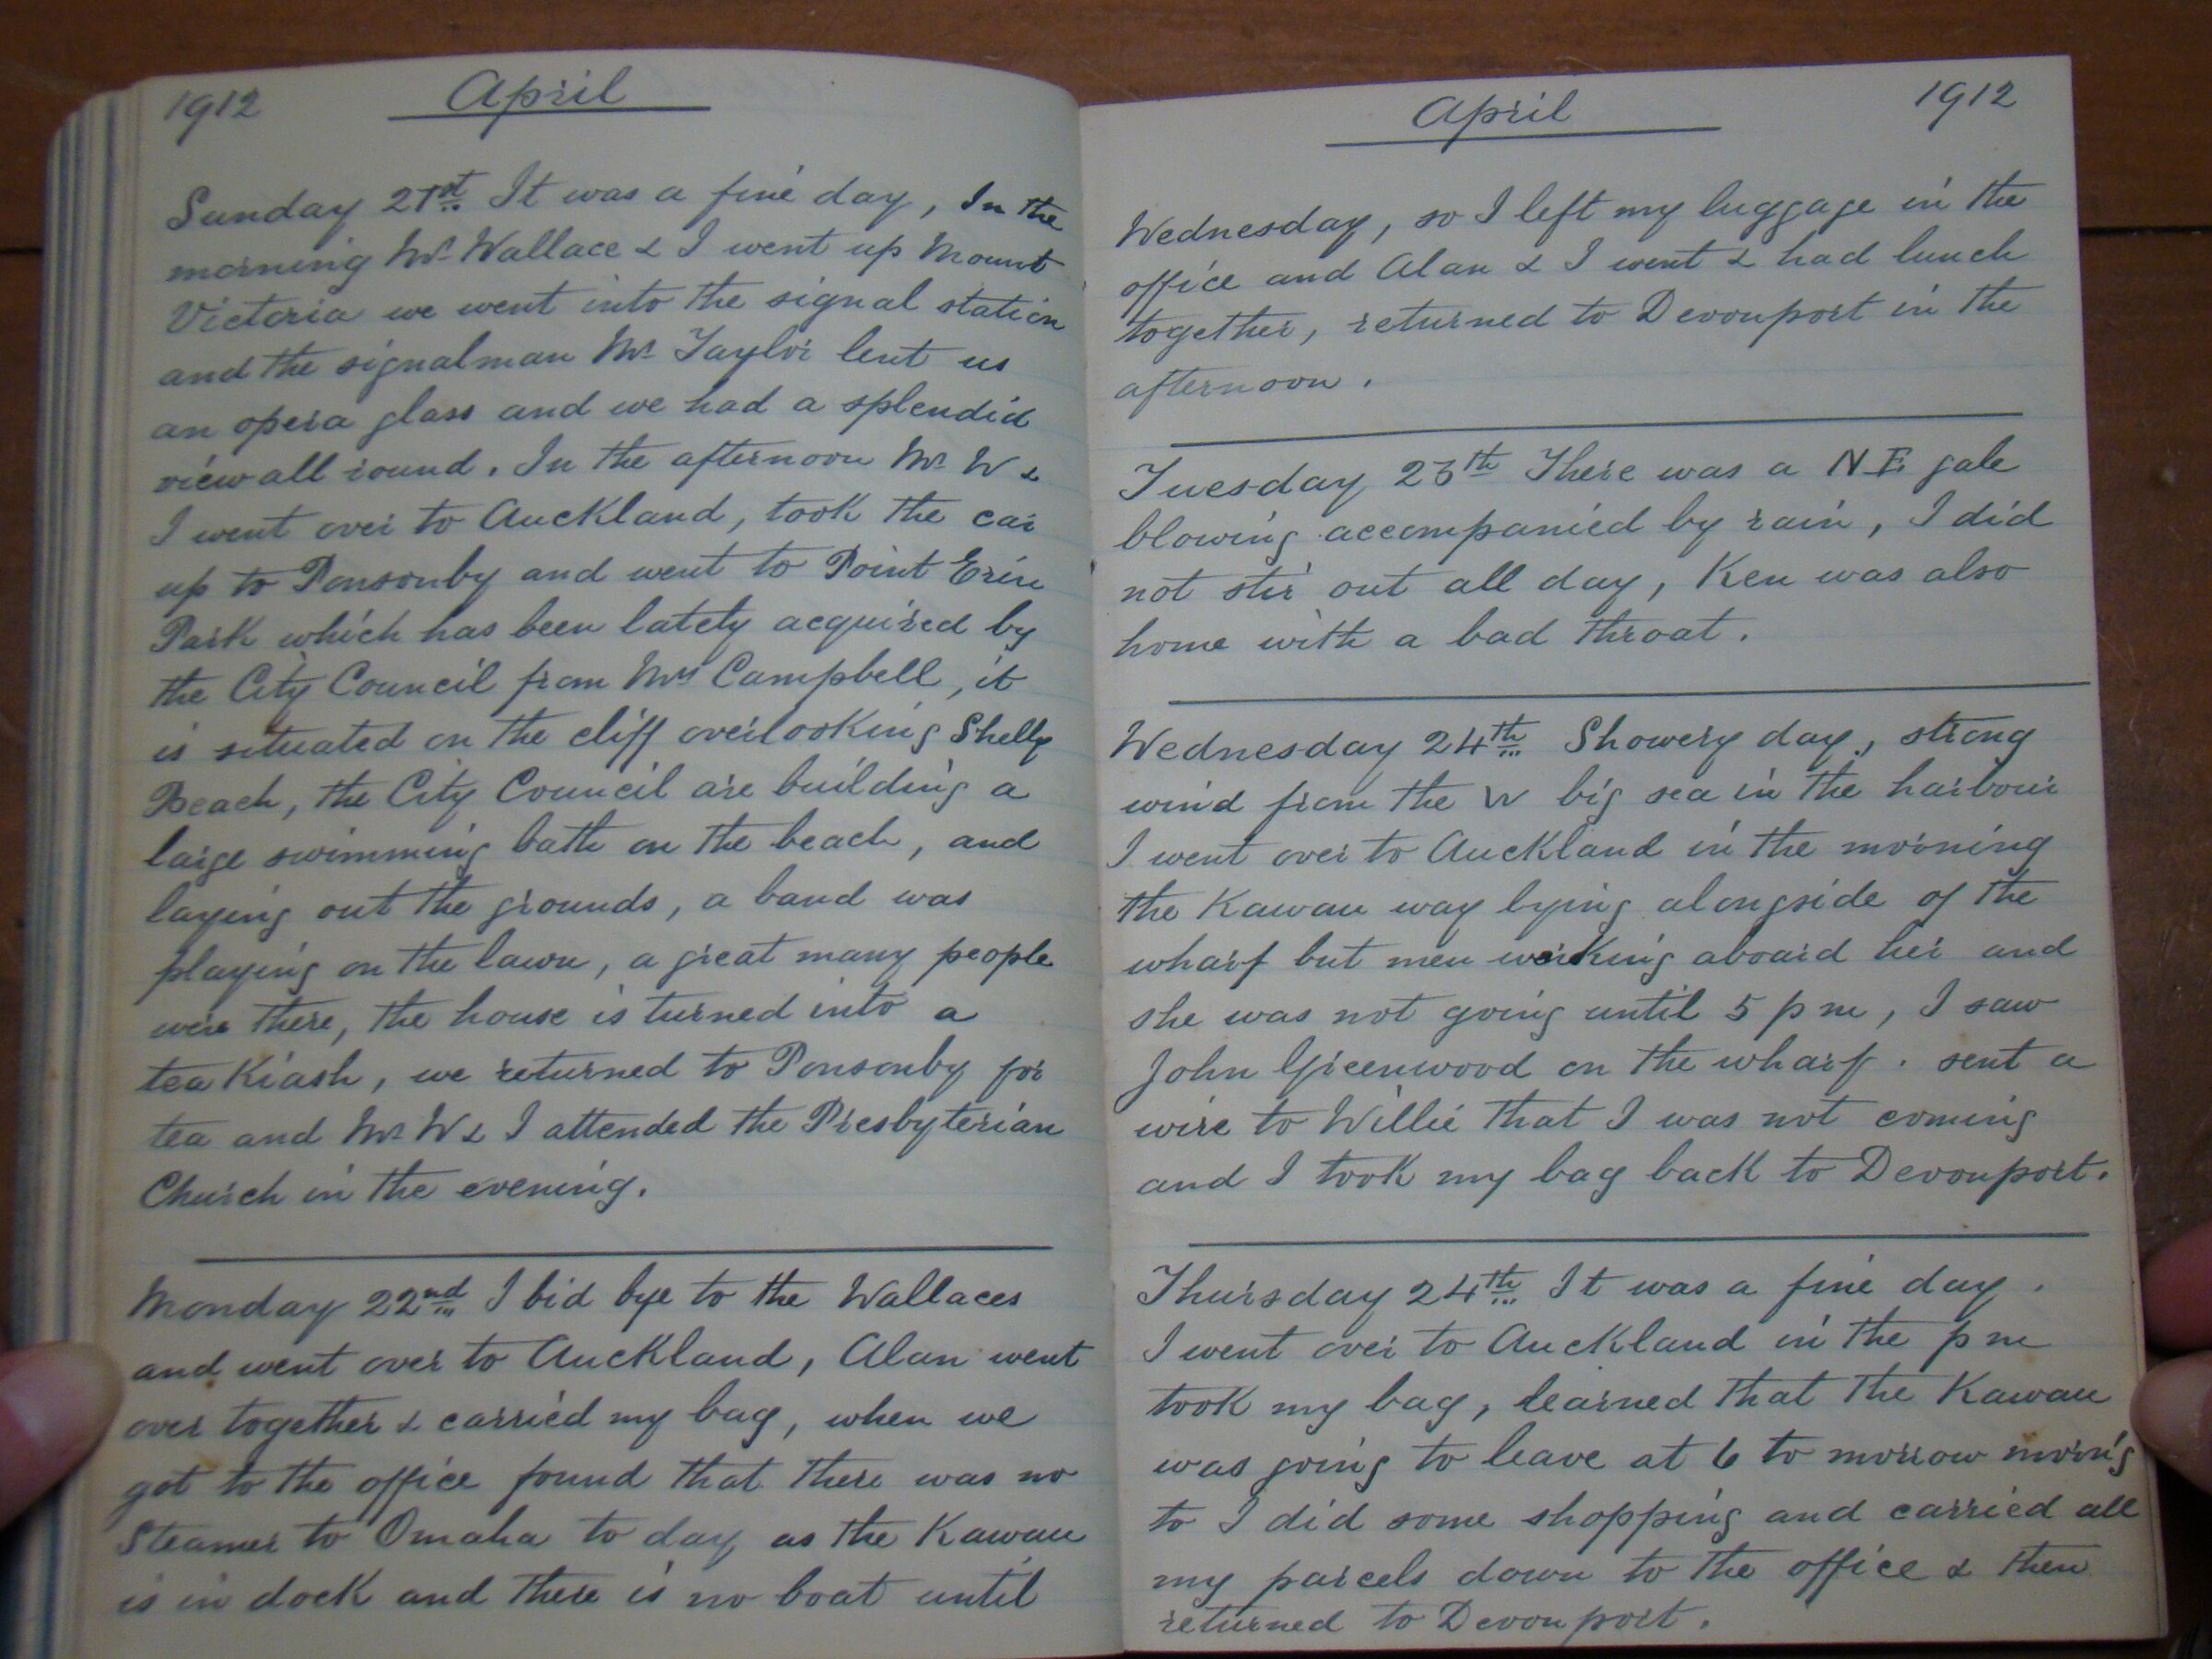 1912 April
Sunday 21st It was a fine day, In the
morning Mr Wallace & I went up Mount
Victoria we went into the signal station
and the signalman Mr Taylor lent us
an opera glass and we had a splendid
view all round. In the afternoon Mr W &
I went over to Auckland, took the car
up to Ponsonby and went to Point Erin
Park which has been lately acquired by
the City Council from Mrs Campbell, it
is situated on the cliff overlooking Shelly
Beach, the City Council are building a
large swimming bath on the beach, and
laying out the grounds, a band was
playing on the lawn, a great many people
were there, the house is turned into a
tea Kiash, we returned to Ponsonby for
tea and Mr W & I attended the Presbyterian
Church in the evening.
Monday 22nd I bid bye to the Wallaces
and went over to Auckland, Alan went
over together & carried my bag, when we
got to the office found that there was no
Steamer to Omaha to day as the Kawau
is in dock and there is no boat until
April 1912
Wednesday, so I left my luggage in the
office and Alan & I went & had lunch
together, returned to Devonport in the
afternoon.
Tuesday 23th There was a N E gale
blowing accompanied by rain, I did
not stir out all day, Ken was also
home with a bad throat.
Wednesday 24th Showery day, strong
wind from the W big sea in the harbour
I went over to Auckland in the morning
the Kawau way lying alongside of the
wharf but men working aboard her and
she was not going until 5 pm, I saw
John Greenwood on the wharf. sent a
wire to Willie that I was not coming
and I took my bag back to Devonport.
Thursday 24th It was a fine day.
I went over to Auckland in the pm
took my bag, learned that the Kawau
was going to leave at 6 to morrow morn'g
to I did some shopping and carried all
my parcels down to the office & then
returned to Devonport.